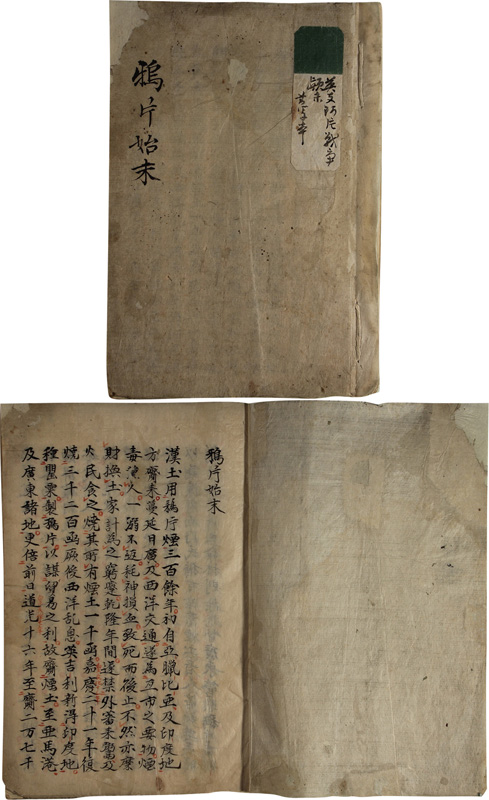 鴉片始末
英支阿片戦争
顛末
鴉片始末
漢土用鴉片煙三百餘年初自亞臘比亞及印度地
方齎來蔓延日廣及西洋交通遂為互市之要物煙
毒便人一溺不返耗神損血致死而後止不然亦糜
財換土家計為之窮蹙乾隆年間遂禁外審未鬻及
火民食之焼其所有煙土一千函嘉慶二十一年復
焼三千二百函厥後西洋乱息英吉利新得印度地
種罌粟製鴉片以謀貿易之利故齎煙土至亜馬港
及廣東諸地更倍前日道光十六年至齎二万七千